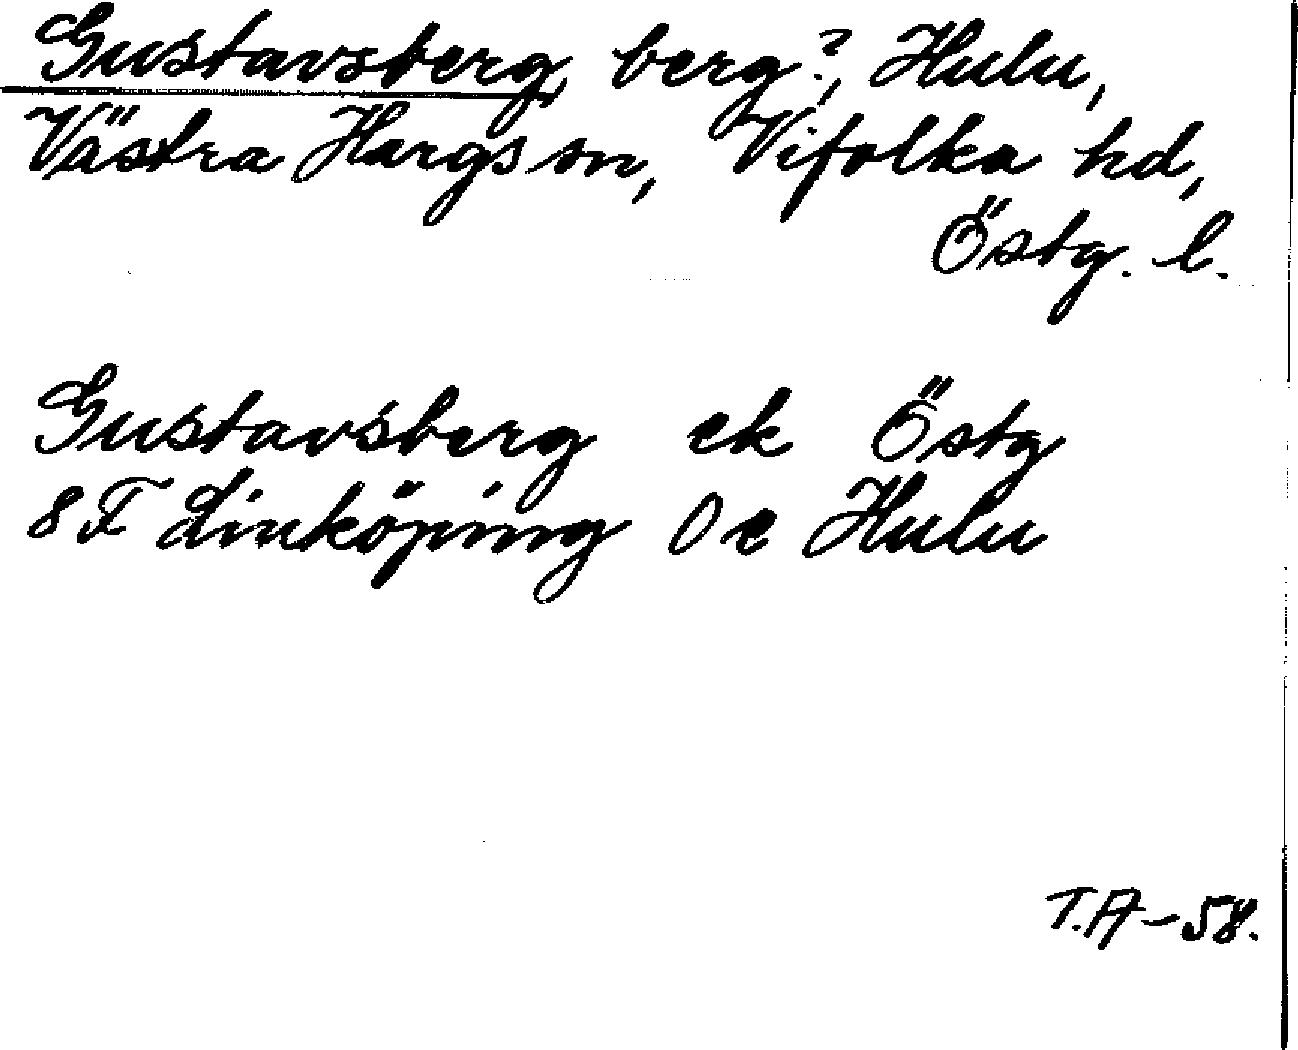 Gustavsberg, berg?, Hulu,
Västra Hargs sn, Vifolka hd,
Östg. l.
Gustavsberg ek Östg
8F Linköping 0e Hulu
T.A-58.